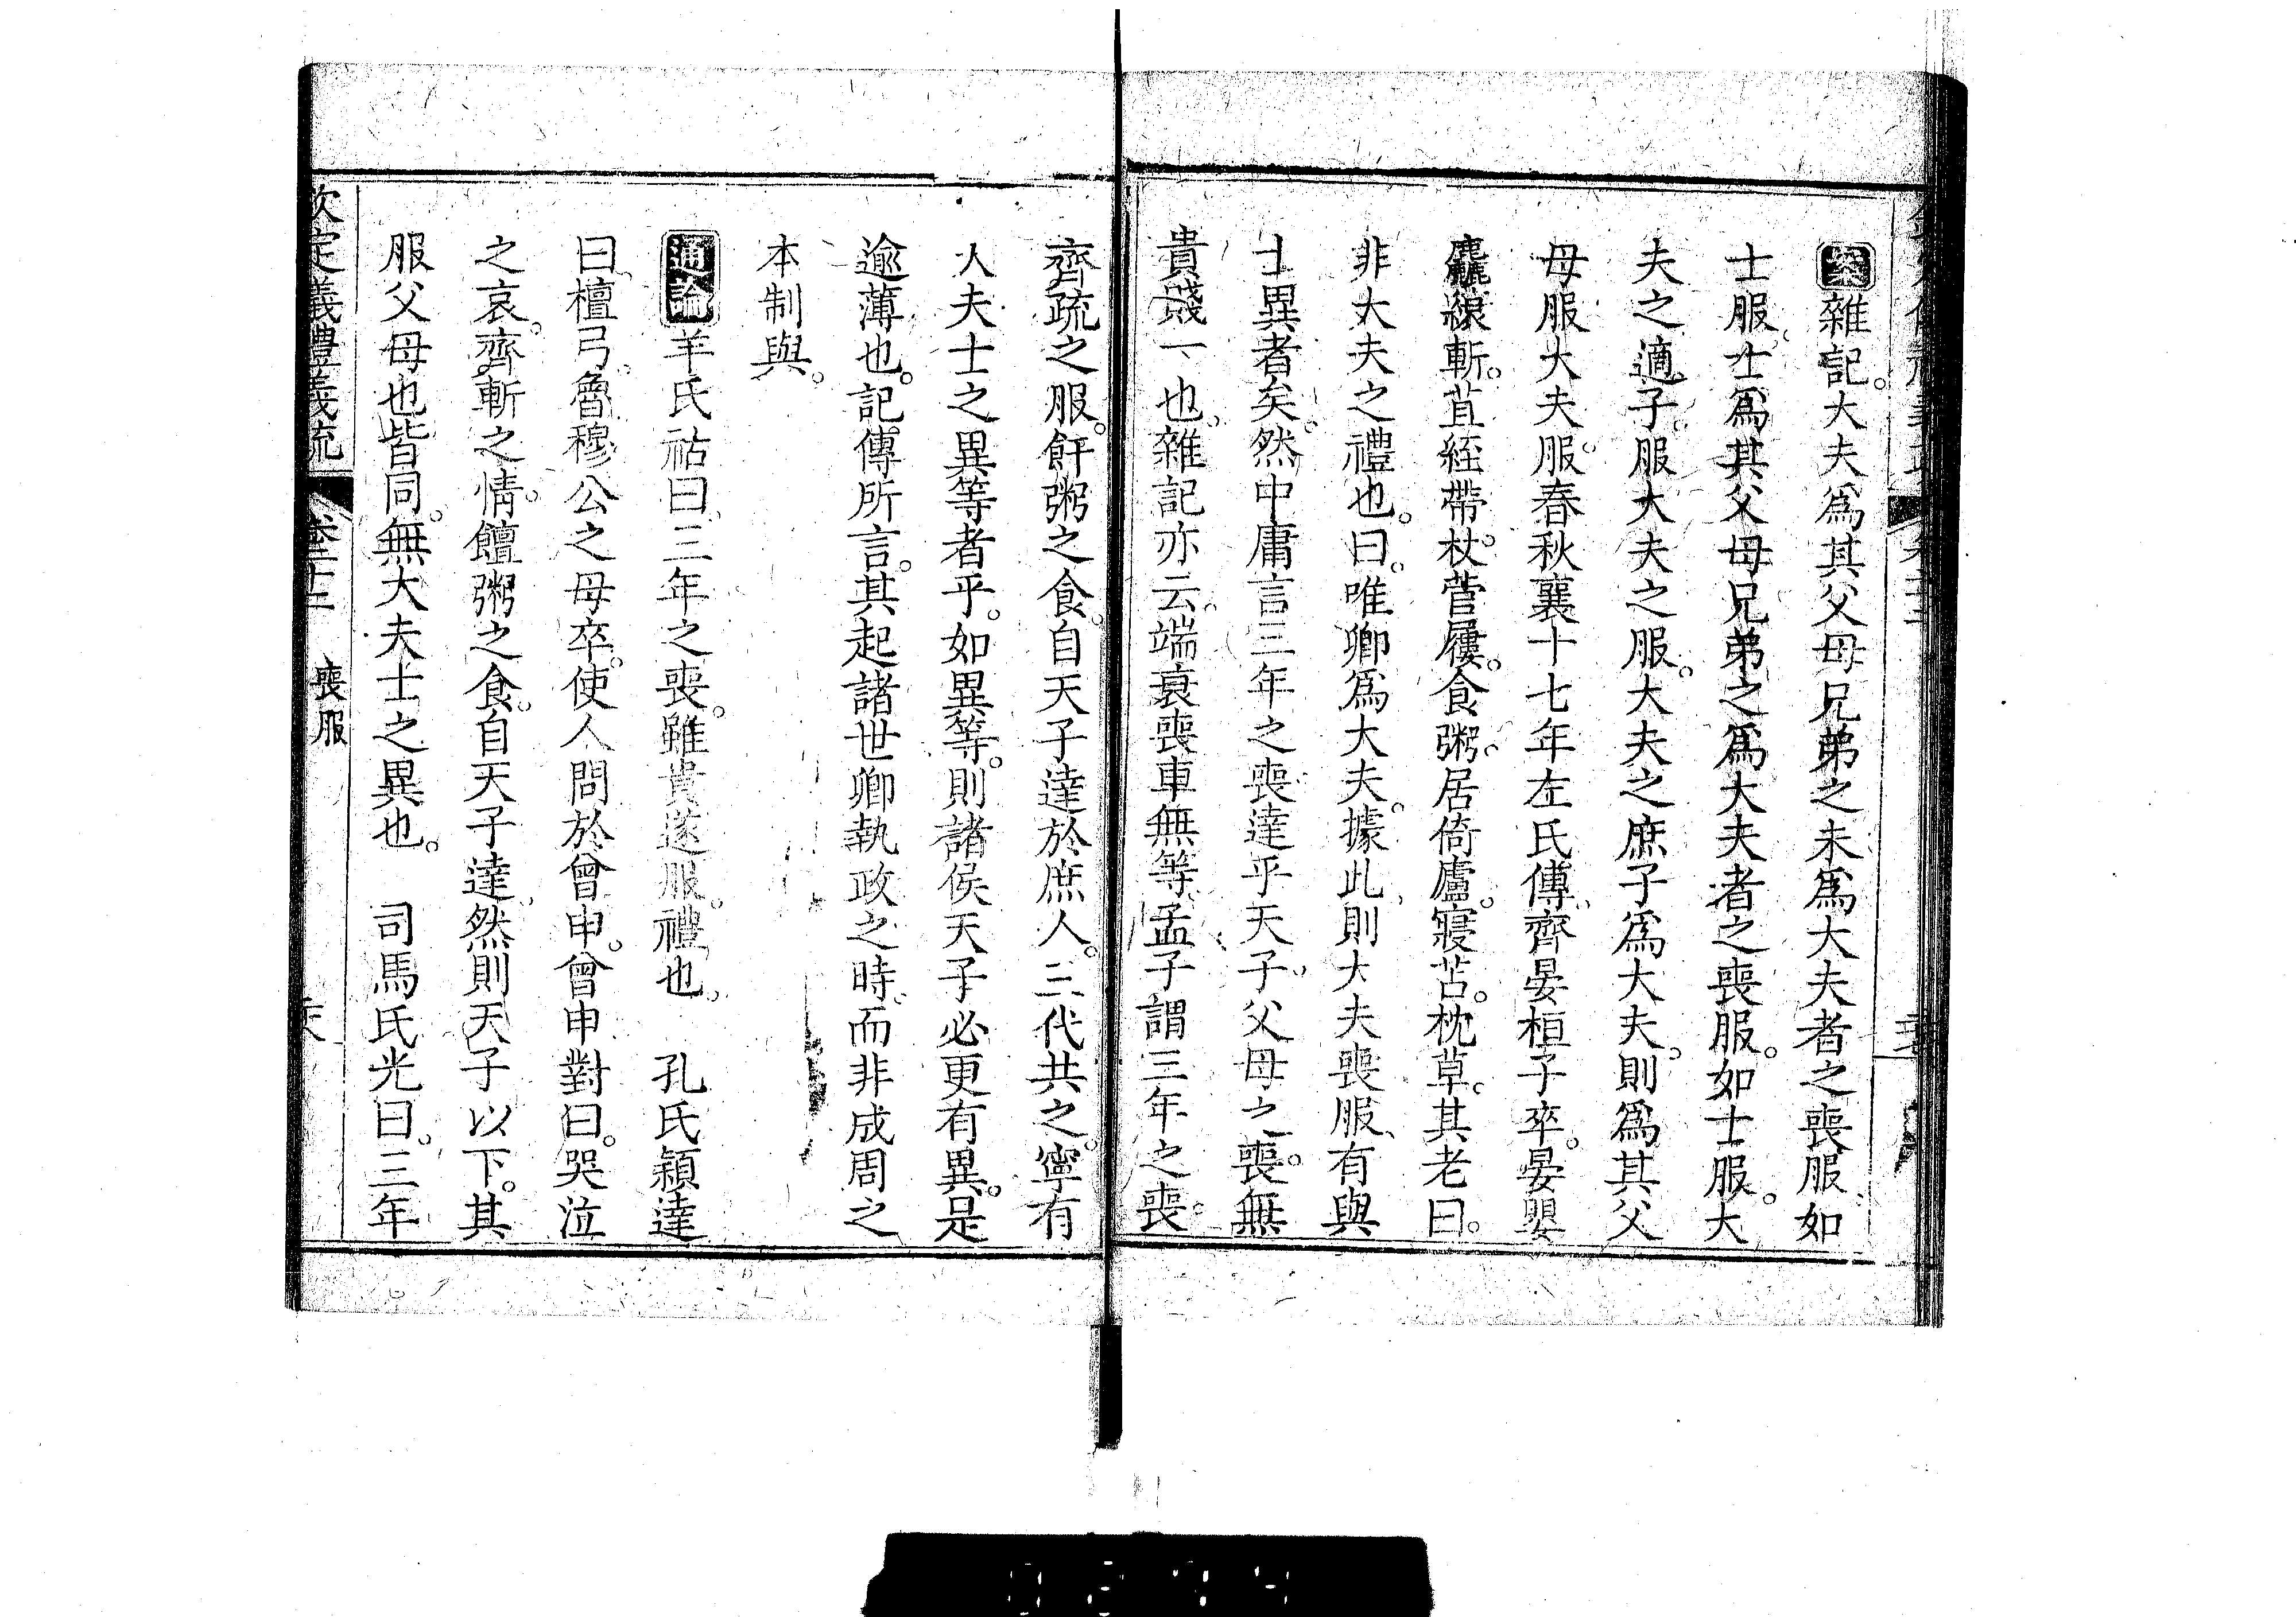 案雜記。大夫爲其父母兄弟之未爲大夫者之喪服、如
士服、士爲其父母兄弟之爲大夫者之喪服。如士服。大
夫之適子。服大夫之服。大夫之庶子爲大夫、則爲其父
母服大夫服。春秋襄十七年左氏傳、齊晏桓子卒。晏嬰
麤縗斬。苴絰帶杖。菅屨。食粥。居倚廬。寢苫。枕草。其老曰。
非大夫之禮也。曰。唯卿爲大夫。據此、則大夫喪服、有與
士異者矣。然中庸言三年之喪、達乎天子、父母之喪。無
貴賤一也、雜記亦云。端衰喪車無等、孟子謂三年之喪。
齊疏之服。飦粥之食、自天子達於庶人。三代共之。寧有
大夫士之異等者乎。如異等。則諸侯天子必更有異。是
逾薄也。記傳所言。其起諸世卿執政之時、而非成周之
本制與。
通論羊氏祜曰、三年之喪。雖貴遂服。禮也。 孔氏穎達
曰、檀弓、魯穆公之母卒。使人問於曾申。曾申對曰。哭泣
之哀。齊斬之情。饘粥之食。自天子達、然則天子以下。其
服父母也皆同。無大夫士之異也。 司馬氏光曰。三年
欽定義禮義疏 卷二十三 喪服